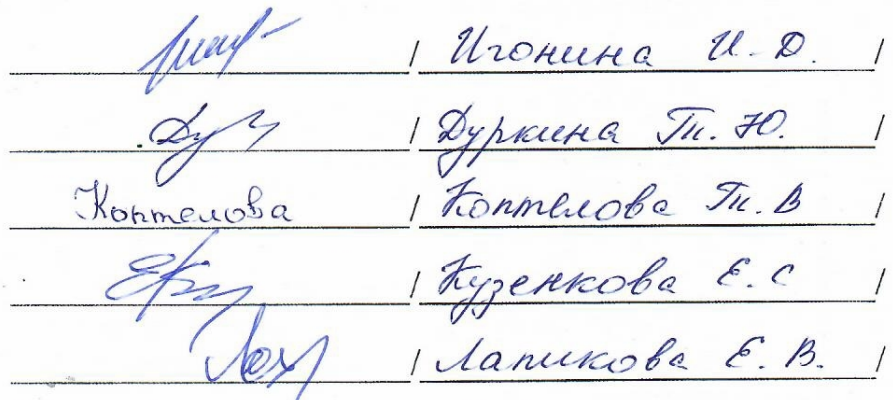 / Игонина И. Д. /
/ Дуркина Т. Ю. /
Коптелова / Коптелова Т. В /
/ Кузенкова Е. С /
/ Лапикова Е. В. /